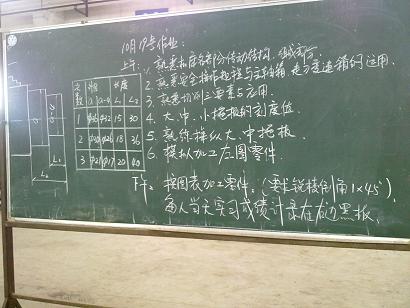 10月19号作业:
上午: 1. 熟悉机床各部分传动结构、组成部分.
2. 熟悉安全操作规程与主轴箱、走刀变速箱的运用.
3. 熟悉切削三要素与应用
4. 大、中、小拖板的刻度位.
5. 熟练操纵大、中拖板.
6. 模拟加工左图零件.
下午: 按图表加工零件. (要求锐棱倒角1×45°).
每人当天实习成绩计录在右边黑板.
次数 外径 长度
d d-4 L1 L2
15 30
18 36
3 20 40
L1
L2